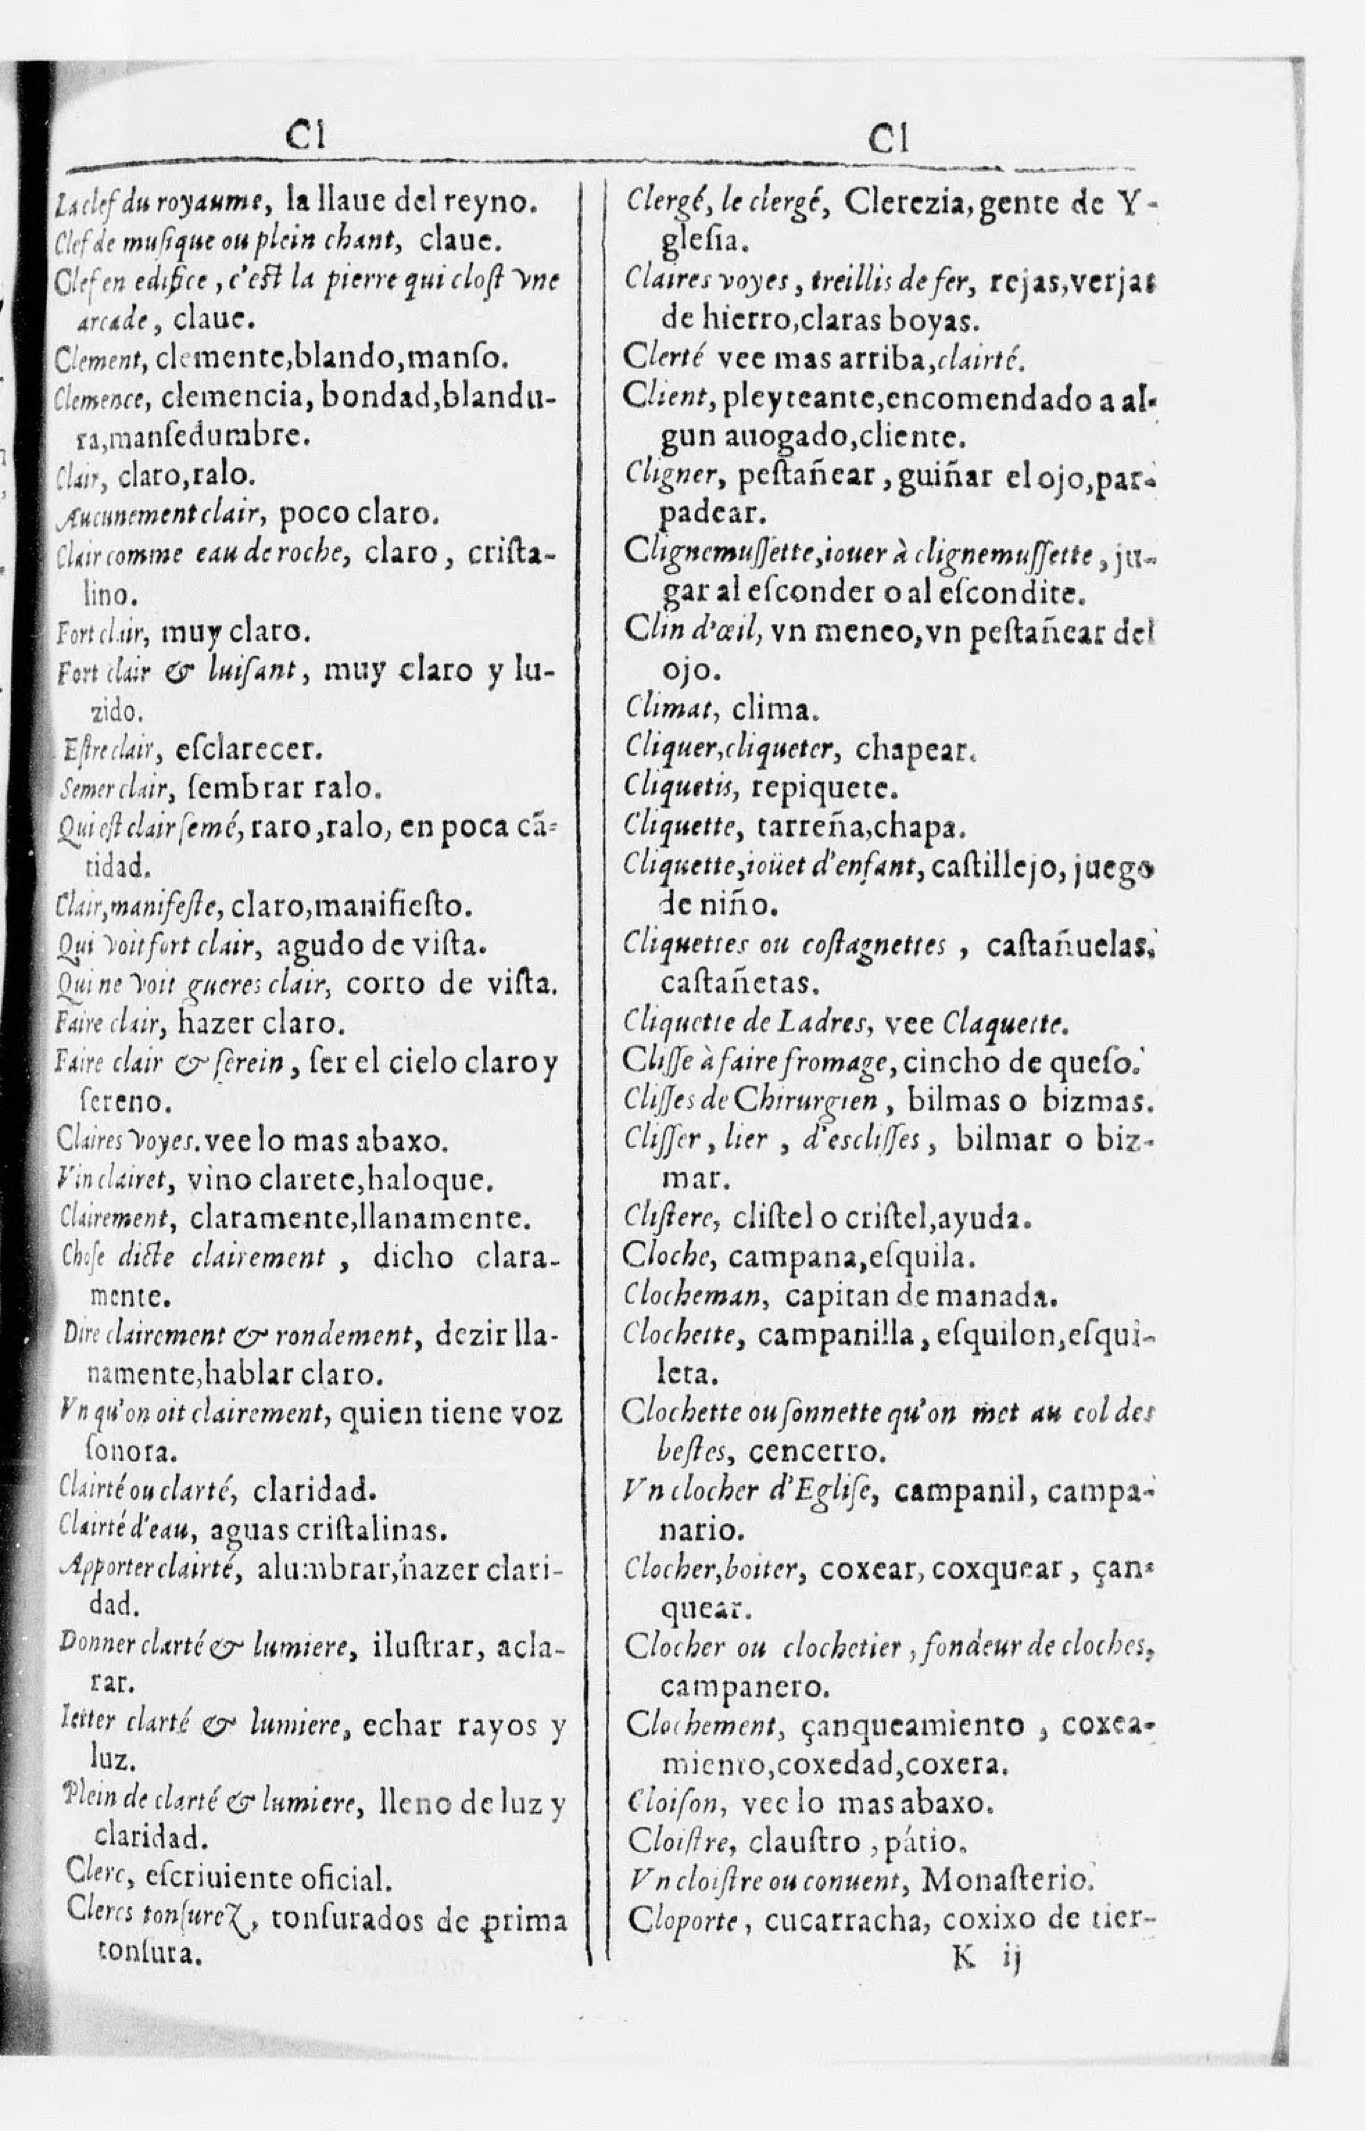 Cl
La clef du royaume, la llaue del reyno.
Clef de muſique ou plein chant, claue.
Clef en edifice, c'eſt la pierre qui cloſt vne
arcade, claue.
Clement, clemente,blando,manſo.
Clemence, clemencia, bondad,blandu-
ra,manſedumbre.
Clair, claro,ralo.
Aucunement clair, poco claro.
Clair comme eau de roche, claro, criſta-
lino.
Fort clair, muy claro.
Fort clair & luiſant, muy claro y lu-
zido.
Eſtre clair, eſclarecer.
Semer clair, ſembrar ralo.
Qui eſt clair ſemé, raro,ralo, en poca cã-
tidad.
Clair,manifeſte, claro,manifieſto.
Qui voit fort clair, agudo de viſta.
Qui ne voit gueres clair, corto de viſta.
Faire clair, hazer claro.
Faire clair & ſerein, ſer el cielo claro y
ſereno.
Claires voyes. vee lo mas abaxo.
Vin clairet, vino clarete,haloque.
Clairement, claramente,llanamente.
Choſe dicte clairement, dicho clara-
mente.
Dire clairement & rondement, dezir lla-
namente,hablar claro.
Vn qu'on oit clairement, quien tiene voz
ſonora.
Clairté ou clarté, claridad.
Clairté d'eau, aguas criſtalinas.
Apporter clairté, alumbrar,hazer clari-
dad.
Donner clarté & lumiere, iluſtrar, acla-
rar.
Ietter clarté & lumiere, echar rayos y
luz.
Plein de clarté & lumiere, lleno de luz y
claridad.
Clerc, eſcriuiente oficial.
Clercs tonſurez, tonſurados de prima
tonſura.
Cl
Clergé, le clergé, Clerezia,gente de Y-
gleſia.
Claires voyes, treillis de fer, rejas,verjas
de hierro,claras boyas.
Clerté vee mas arriba,clairté.
Client, pleyteante,encomendado a al-
gun auogado,cliente.
Cligner, peſtañear, guiñar el ojo,par-
padear.
Clignemuſſette,iouer à clignemuſſette, ju-
gar al eſconder o al eſcondite.
Clin d'œil, vn meneo,vn peſtañear del
ojo.
Climat, clima.
Cliquer,cliqueter, chapear.
Cliquetis, repiquete.
Cliquette, tarreña,chapa.
Cliquette,ioüet d'enfant, caſtillejo, juego
de niño.
Cliquettes ou coſtagnettes, caſtañuelas,
caſtañetas.
Cliquette de Ladres, vee Claquette.
Cliſſe à faire fromage, cincho de queſo.
Cliſſes de Chirurgien, bilmas o bizmas.
Cliſſer, lier, d'escliſſes, bilmar o biz-
mar.
Cliſtere, cliſtel o criſtel,ayuda.
Cloche, campana,eſquila.
Clocheman, capitan de manada.
Clochette, campanilla, eſquilon,eſqui-
leta.
Clochette ou ſonnette qu'on met au col des
beſtes, cencerro.
Vn clocher d'Egliſe, campanil, campa-
nario.
Clocher,boiter, coxear, coxquear, çan-
quear.
Clocher ou clochetier, fondeur de cloches,
campanero.
Clochement, çanqueamiento, coxea-
miento,coxedad,coxera.
Cloiſon, vee lo mas abaxo.
Cloiſtre, clauſtro, pátio.
Vn cloiſtre ou conuent, Monaſterio.
Cloporte, cucarracha, coxixo de tier-
K ij